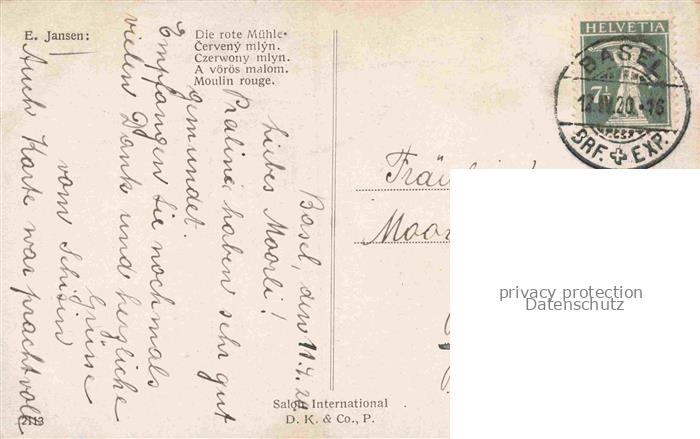 E. Jansen:
Die rote Mühle.
Červený mlýn.
Czerwony mlyn.
A vörös malom.
Moulin rouge.
HELVETIA
7½
BASEL
12.IV.20.-16
BRF. EXP.
Basel, den 11.4.20
Liebes Moorli!
Praliné haben sehr gut
gemundet.
Empfangen Sie nochmals
vielen Dank und herzliche
Grüsse
vom
Auch Karte war prachtvoll
Moor
Salon International
D. K. & Co., P.
privacy protection
Datenschutz